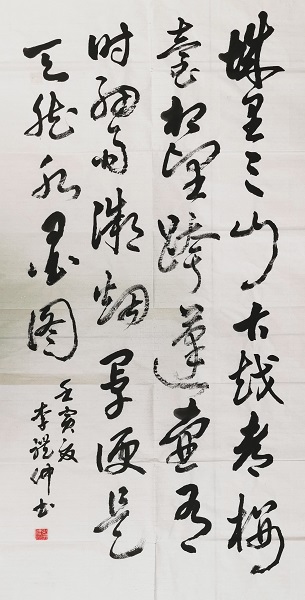 城里三山古越都樓
臺相望跨蓬壶有
时细雨微烟罩便是
天然水墨图
壬寅
李 仲书